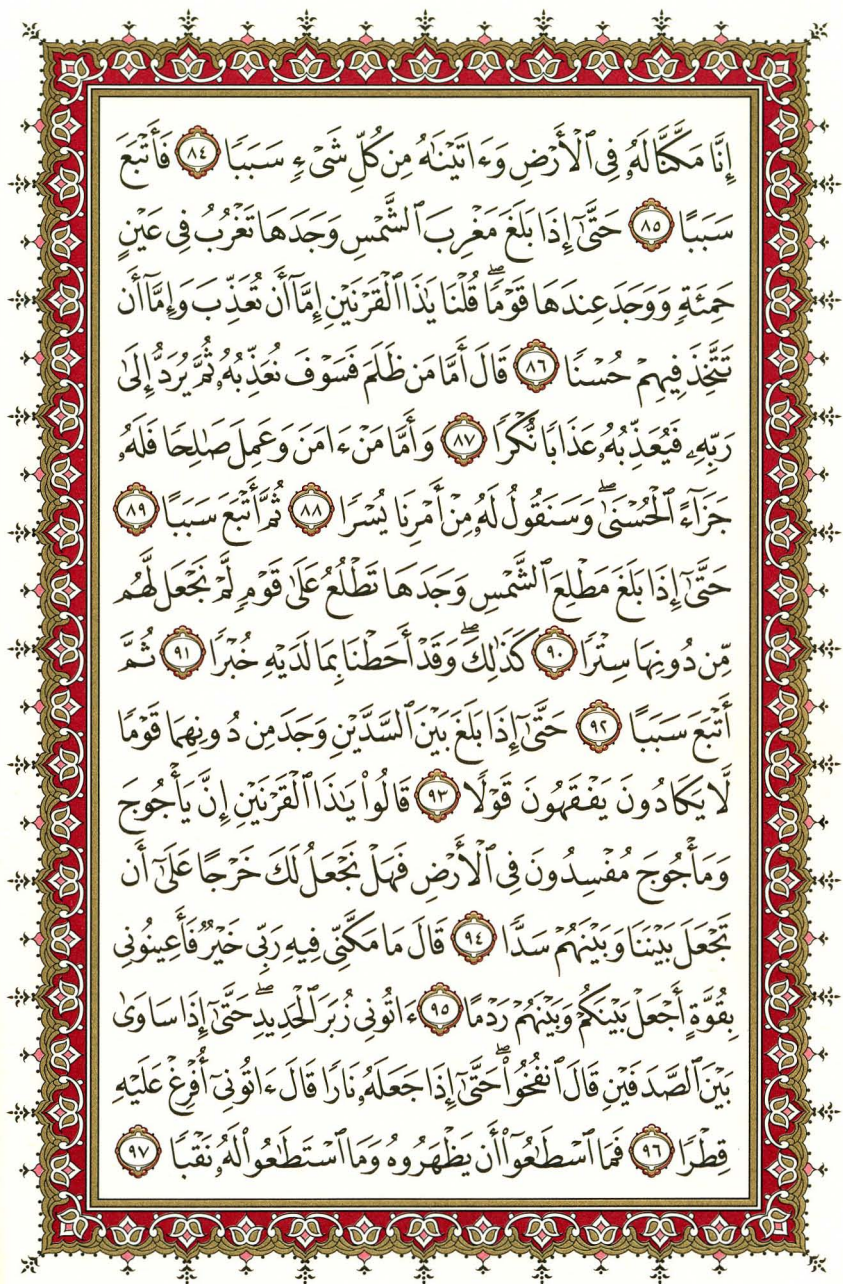 إِنَّا مَكَّنَّا لَهُۥ فِى ٱلْأَرْضِ وَءَاتَيْنَٰهُ مِن كُلِّ شَىْءٍ سَبَبًا ٨٤ فَأَتْبَعَ
سَبَبًا ٨٥ حَتَّىٰٓ إِذَا بَلَغَ مَغْرِبَ ٱلشَّمْسِ وَجَدَهَا تَغْرُبُ فِى عَيْنٍ
حَمِئَةٍ وَوَجَدَ عِندَهَا قَوْمًا ۗ قُلْنَا يَٰذَا ٱلْقَرْنَيْنِ إِمَّآ أَن تُعَذِّبَ وَإِمَّآ أَن
تَتَّخِذَ فِيهِمْ حُسْنًا ٨٦ قَالَ أَمَّا مَن ظَلَمَ فَسَوْفَ نُعَذِّبُهُۥ ثُمَّ يُرَدُّ إِلَىٰ
رَبِّهِۦ فَيُعَذِّبُهُۥ عَذَابًا نُّكْرًا ٨٧ وَأَمَّا مَنْ ءَامَنَ وَعَمِلَ صَٰلِحًا فَلَهُۥ
جَزَآءً ٱلْحُسْنَىٰ ۖ وَسَنَقُولُ لَهُۥ مِنْ أَمْرِنَا يُسْرًا ٨٨ ثُمَّ أَتْبَعَ سَبَبًا ٨٩
حَتَّىٰٓ إِذَا بَلَغَ مَطْلِعَ ٱلشَّمْسِ وَجَدَهَا تَطْلُعُ عَلَىٰ قَوْمٍ لَّمْ نَجْعَل لَّهُم
مِّن دُونِهَا سِتْرًا ٩٠ كَذَٰلِكَ ۖ وَقَدْ أَحَطْنَا بِمَا لَدَيْهِ خُبْرًا ٩١ ثُمَّ
أَتْبَعَ سَبَبًا ٩٢ حَتَّىٰٓ إِذَا بَلَغَ بَيْنَ ٱلسَّدَّيْنِ وَجَدَ مِن دُونِهِمَا قَوْمًا
لَّا يَكَادُونَ يَفْقَهُونَ قَوْلًا ٩٣ قَالُوا۟ يَٰذَا ٱلْقَرْنَيْنِ إِنَّ يَأْجُوجَ
وَمَأْجُوجَ مُفْسِدُونَ فِى ٱلْأَرْضِ فَهَلْ نَجْعَلُ لَكَ خَرْجًا عَلَىٰٓ أَن
تَجْعَلَ بَيْنَنَا وَبَيْنَهُمْ سَدًّا ٩٤ قَالَ مَا مَكَّنِّى فِيهِ رَبِّى خَيْرٌ فَأَعِينُونِى
بِقُوَّةٍ أَجْعَلْ بَيْنَكُمْ وَبَيْنَهُمْ رَدْمًا ٩٥ ءَاتُونِى زُبَرَ ٱلْحَدِيدِ ۖ حَتَّىٰٓ إِذَا سَاوَىٰ
بَيْنَ ٱلصَّدَفَيْنِ قَالَ ٱنفُخُوا۟ ۖ حَتَّىٰٓ إِذَا جَعَلَهُۥ نَارًا قَالَ ءَاتُونِىٓ أُفْرِغْ عَلَيْهِ
قِطْرًا ٩٦ فَمَا ٱسْطَٰعُوٓا۟ أَن يَظْهَرُوهُ وَمَا ٱسْتَطَٰعُوا۟ لَهُۥ نَقْبًا ٩٧